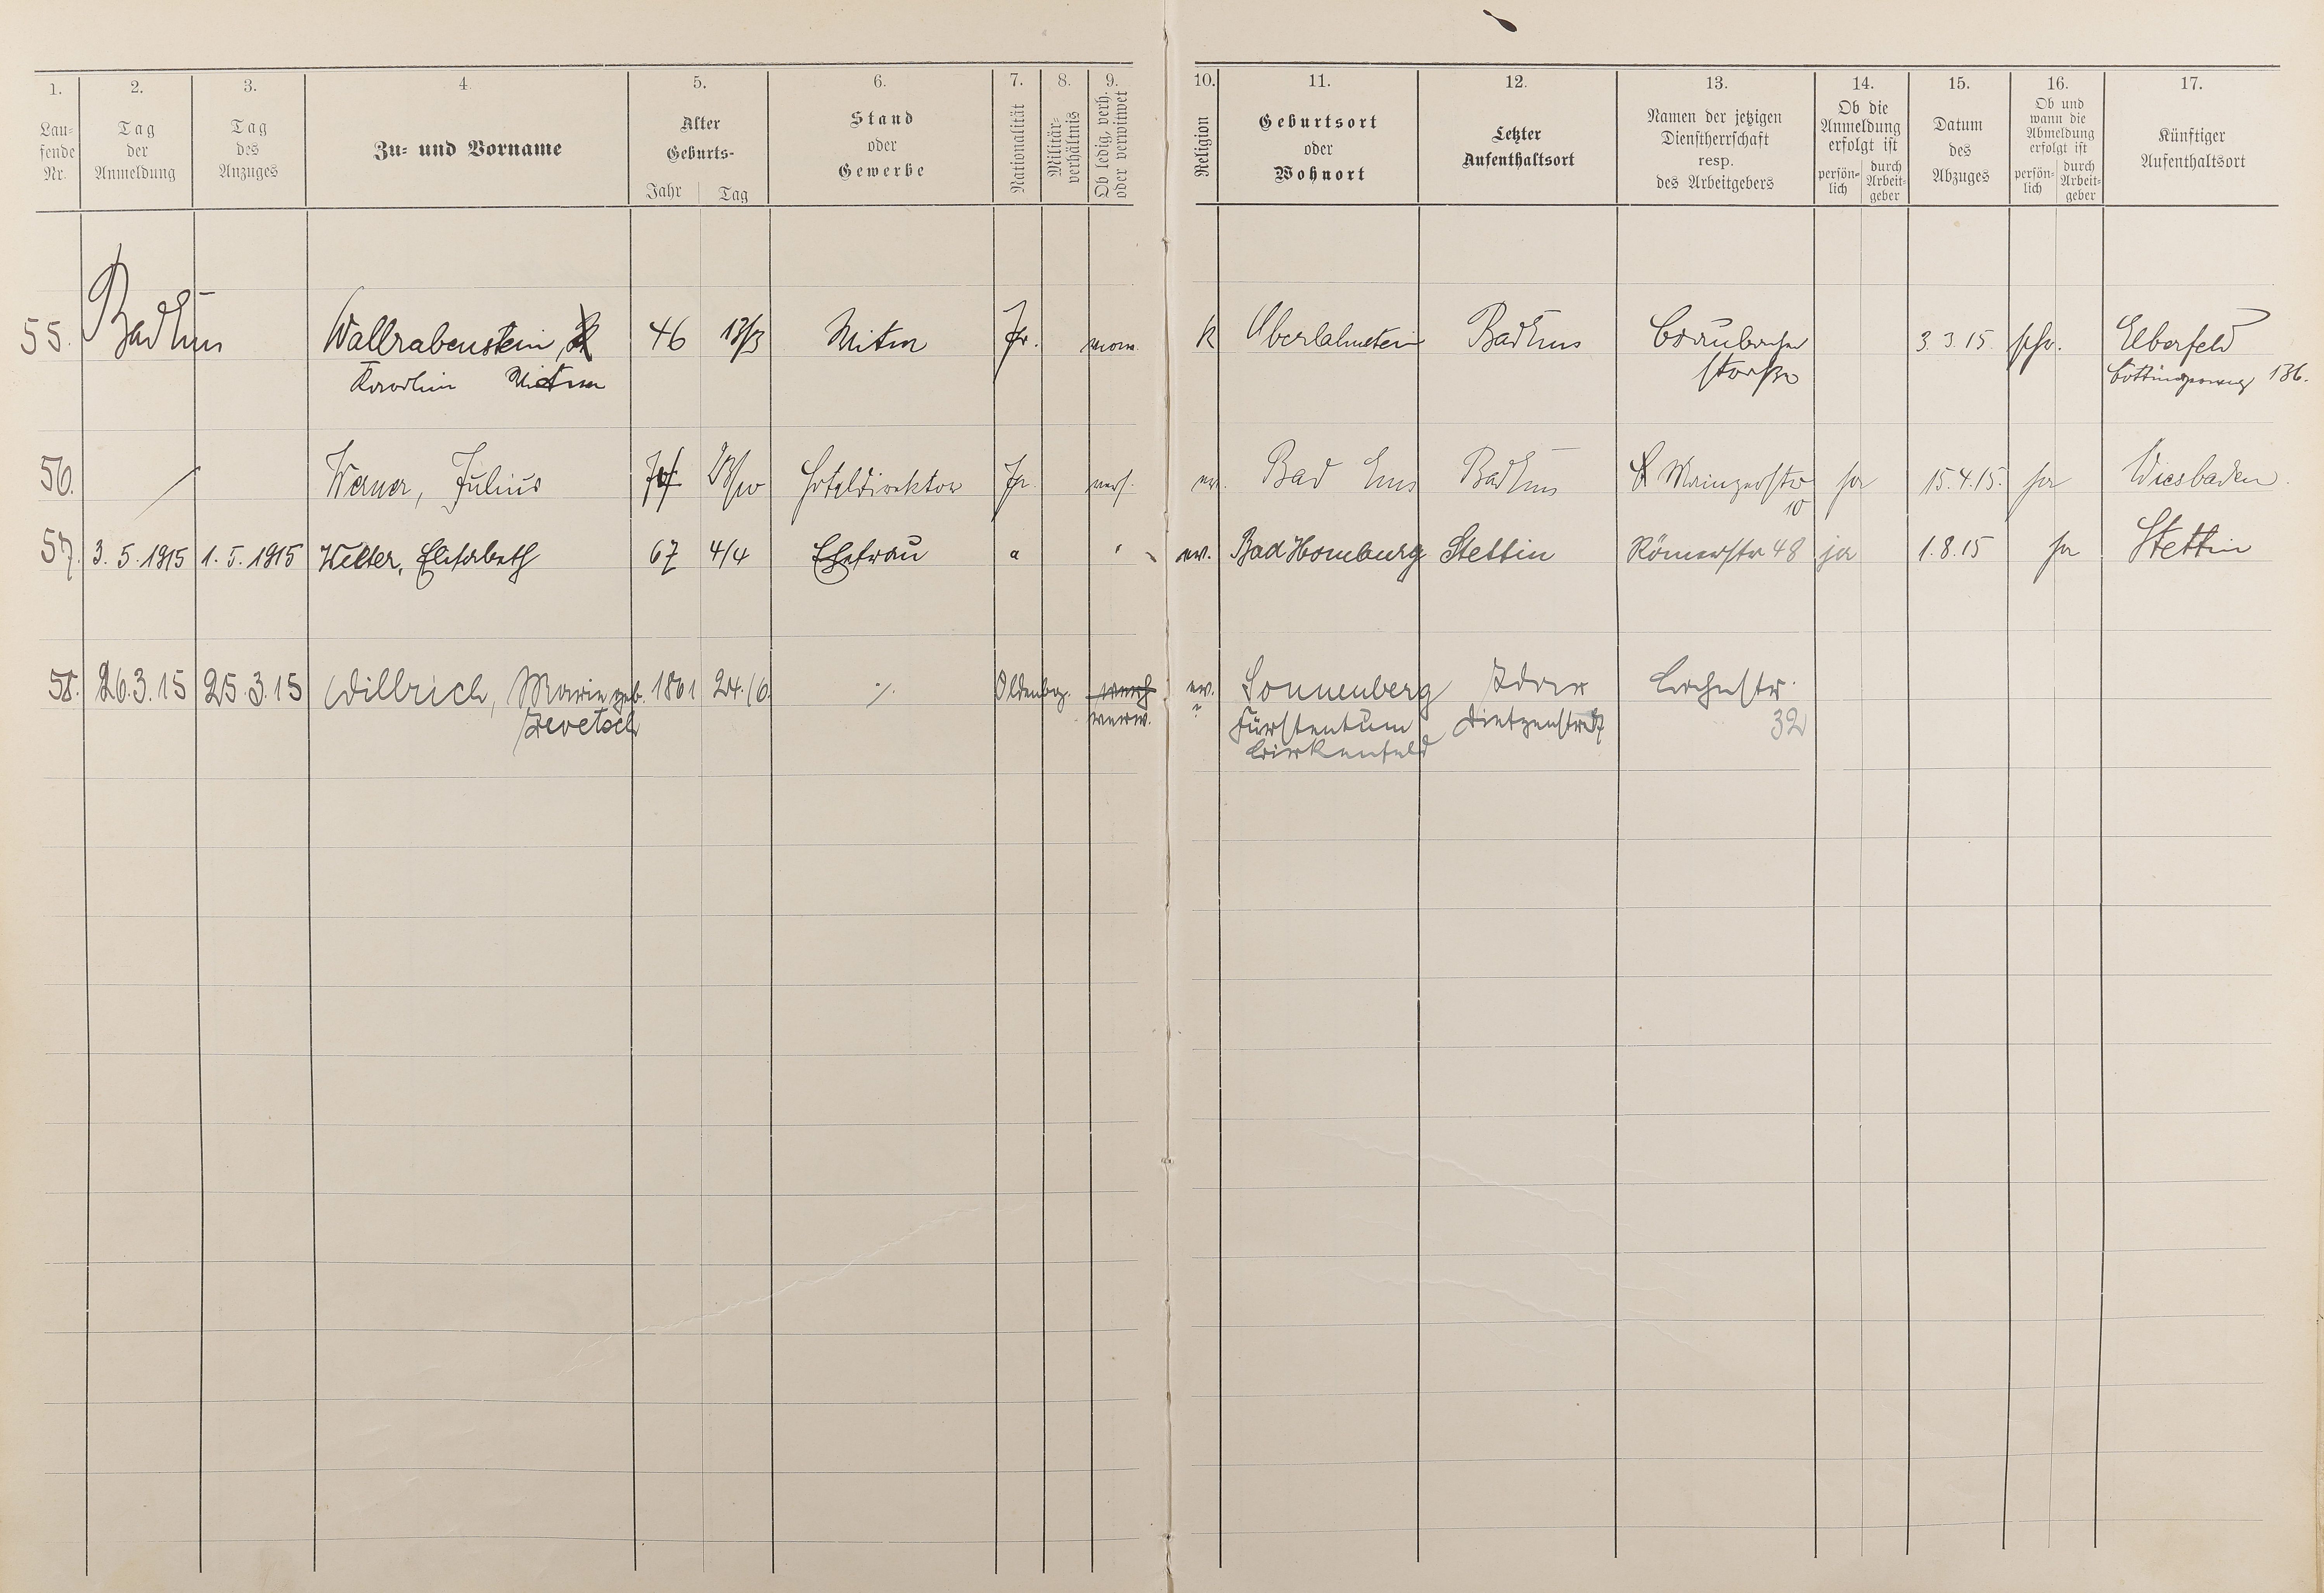 1. 2. 3. 4. 5. 6. 7. 8. 9. 10. 11. 12. 13. 14. 15. 16. 17.
Lau-
fende
Nr.
Tag
der
Anmeldung
Tag
des
Anzuges
Zu- und Vorname
Alter
Geburts-
Jahr Tag
Stand
oder
Gewerbe
Nationalität
Militär-
verhältnis
Ob ledig, verh.
oder verwitwet
Religion
Geburtsort
oder
Wohnort
Letzter
Aufenthaltsort
Namen der jetzigen
Dienstherrschaft
resp.
des Arbeitgebers
Ob die
Anmeldung
erfolgt ist
persön-
lich
durch
Arbeit-
geber
Datum
des
Abzuges
Ob und
wann die
Abmeldung
erfolgt ist
persön-
lich
durch
Arbeit-
geber
Künftiger
Aufenthaltsort
55. Bad Ems Wallrabenstein, 46 13/3 Witwe Pr. K Oberlahnstein Bad Ems Braubacher 3.3.15 Elberfeld
Karolin Witwe straße 136.
56. Werner, Julius Hoteldirektor Pr. verh. ev. Bad Ems Bad Ems Mainzerstr ja 15.4.15. ja Wiesbaden.
10
57. 3.5.1915 1.5.1915 Welter, Elisabeth 67 4/4 Ehefrau " " ev. Bad Homburg Stettin Römerstr 48 ja 1.8.15 ja Stettin
58. 26.3.15 25.3.15 Willrich, Marie geb. 1861 24./6. ./. Oldenbg. verh ev. Sonnenberg Idar
verw. Fürstentum 32
Birkenfeld